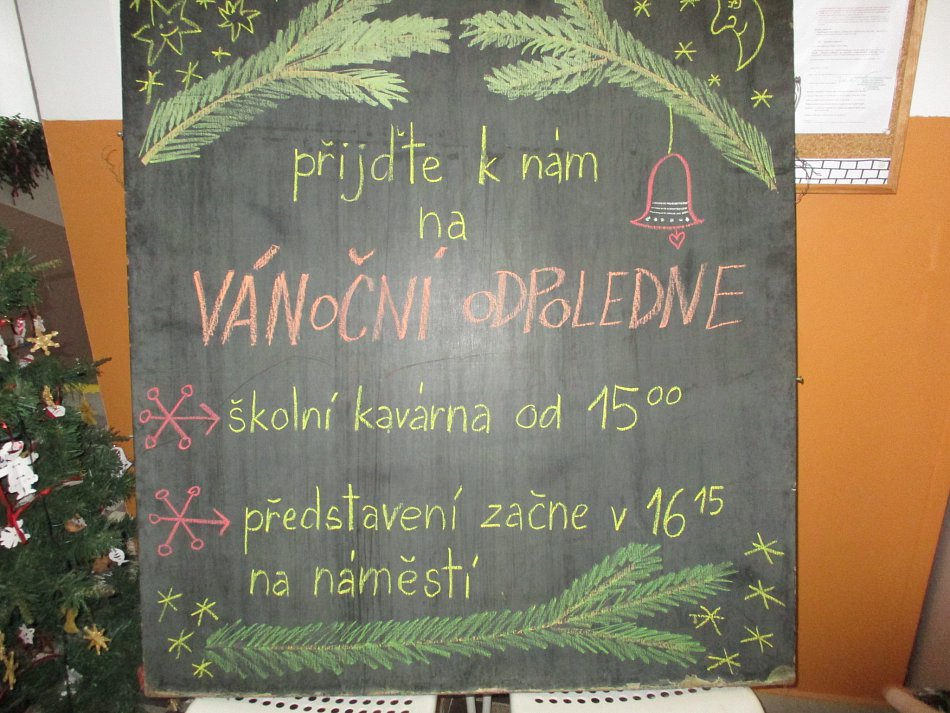 přijďte k nám
na
VÁNOČNÍ ODPOLEDNE
školní kavárna od 15⁰⁰
představení začne v 16¹⁵
na náměstí